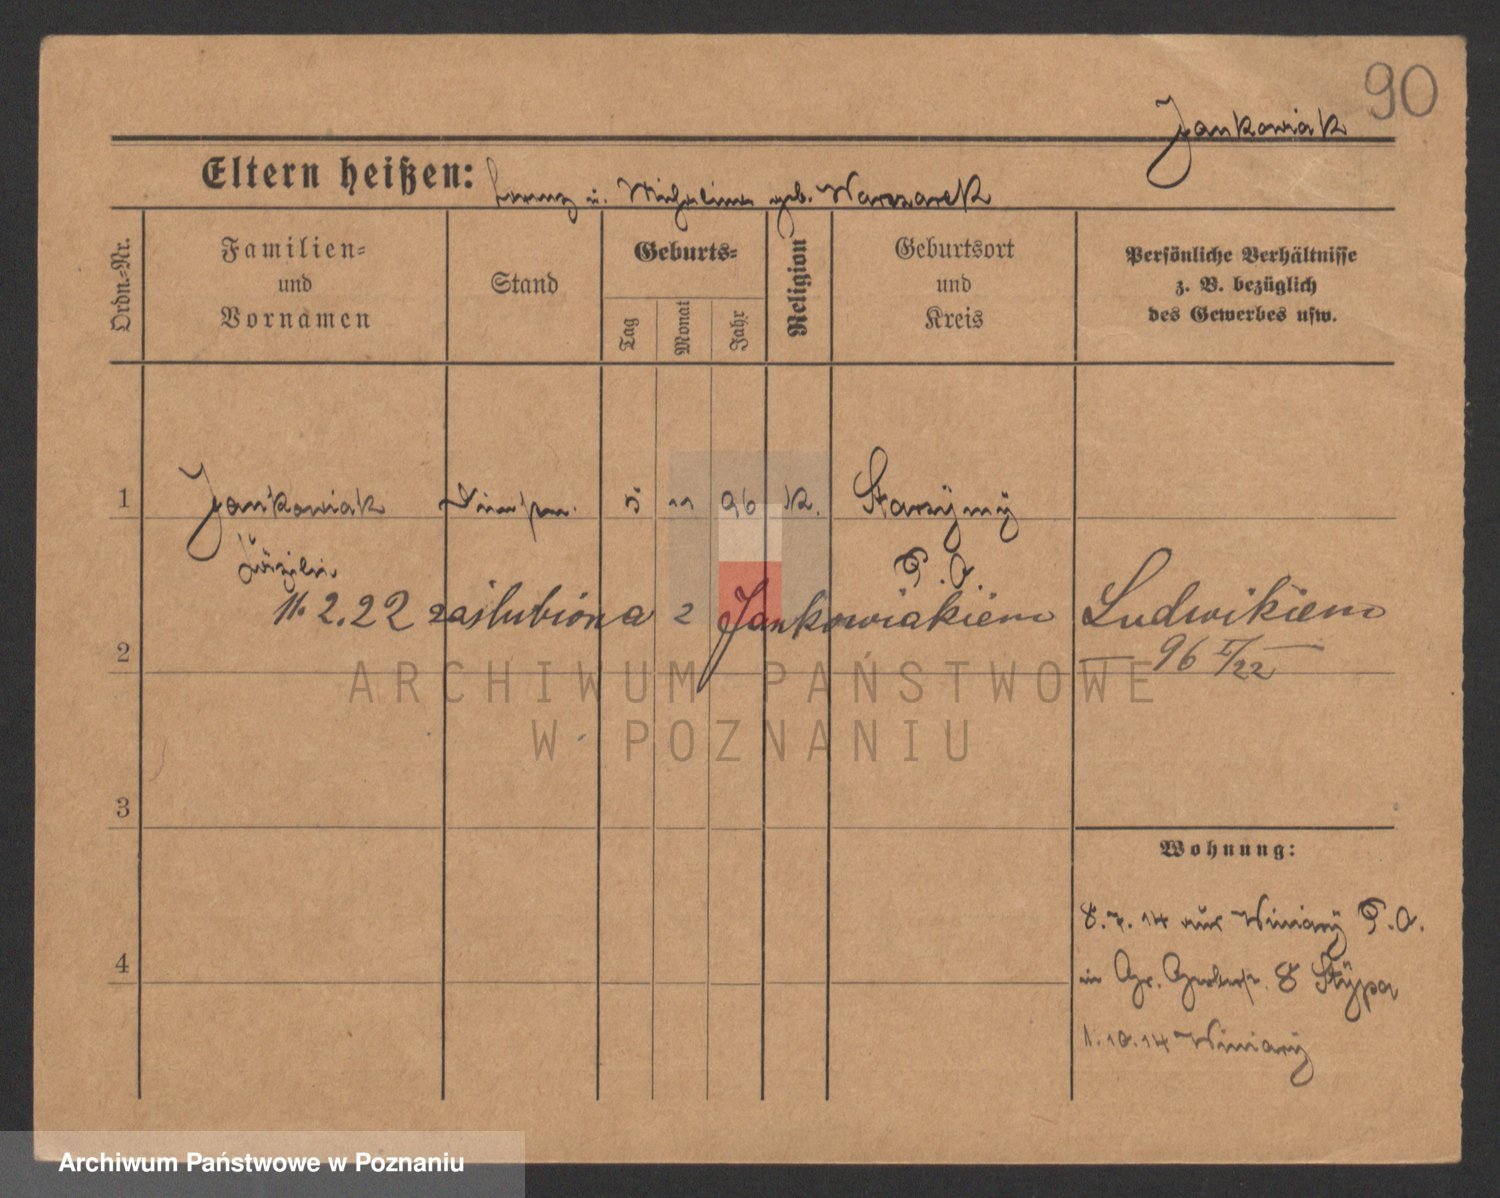 90
Jankowiak
Eltern heißen: u. geb. Warszarek
Ordn.-Nr.
Familien-
und
Vornamen
Stand
Geburts-
Tag
Monat
Jahr
Religion
Geburtsort
und
Kreis
Persönliche Verhältnisse
z. B. bezüglich
des Gewerbes usw.
1 Jankowiak 5 11 96 k. Starzyny
P.O.
11.2.22 zaślubiona z Jankowiakiem Ludwikiem
2 96 I/22
3
Wohnung:
8.7.14 aus Winiary P.O.
4 in Gr. Gerberstr. 8 Stypa
1.10.14 Winiary
ARCHIWUM PAŃSTWOWE
W POZNANIU
Archiwum Państwowe w Poznaniu